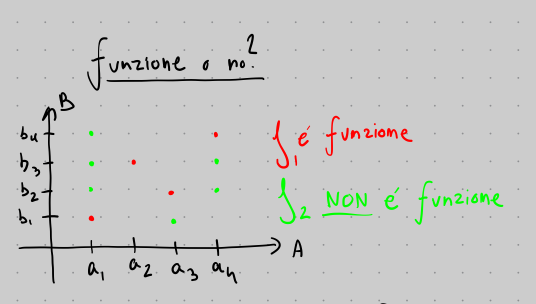 funzione o no?
B
b4
b3
b2
b1
a1 a2 a3 a4 A
f1 é funzione
f2 NON é funzione